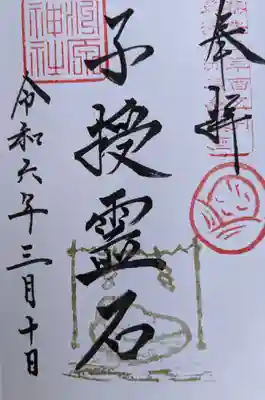 奉拝
子授霊石
令和六年三月十日